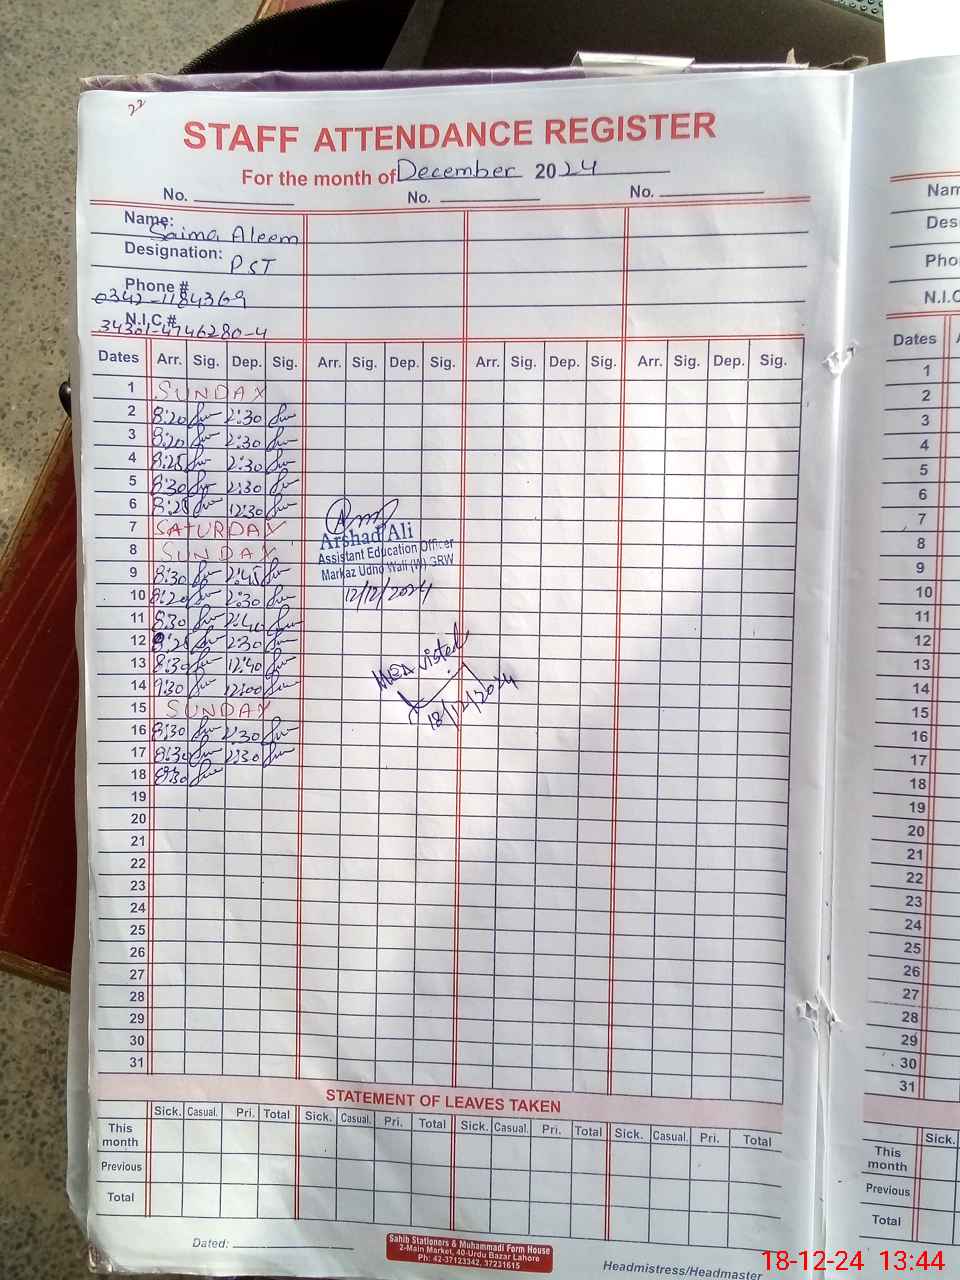 22
STAFF ATTENDANCE REGISTER
For the month of December 2024
No. No. No.
Name: Saima Aleem
Designation: PST
Phone # 0342-1184369
N.I.C.# 34301-4746280-4
Dates Arr. Sig. Dep. Sig. Arr. Sig. Dep. Sig. Arr. Sig. Dep. Sig. Arr. Sig. Dep. Sig.
1 SUNDAY
2 8:20 2:30
3 8:20 2:30
4 8:25 2:30
5 8:30 2:30
6 8:25 12:30
7 SATURDAY
8 SUNDAY
9 8:30 2:45
10 8:20 2:30
11 8:30 2:40
12 8:25 2:30
13 8:30 12:40
14 9:30 12:00
15 SUNDAY
16 8:30 2:30
17 8:30 2:30
18 8:30
19
20
21
22
23
24
25
26
27
28
29
30
31
Arshad Ali
Assistant Education Officer
Markaz Udho Wali (W) GRW
12/12/2024
MEA visted
18/12/2024
STATEMENT OF LEAVES TAKEN
Sick. Casual. Pri. Total Sick. Casual. Pri. Total Sick. Casual. Pri. Total Sick. Casual. Pri. Total
This month
Previous
Total
Dated:
Sahib Stationers & Muhammadi Form House
2-Main Market, 40-Urdu Bazar Lahore
Ph: 42-37123342, 37231615
Headmistress/Headmaster
Nam
Des
Pho
N.I.C
Dates
1
2
3
4
5
6
7
8
9
10
11
12
13
14
15
16
17
18
19
20
21
22
23
24
25
26
27
28
29
30
31
Sick.
This month
Previous
Total
18-12-24 13:44